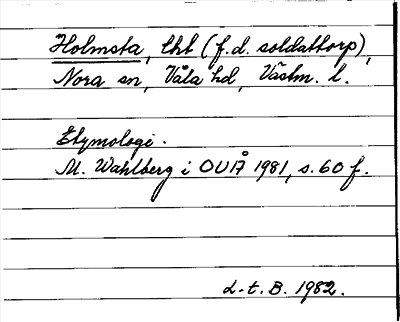 Holmsta, lht (f.d. soldattorp),
Nora sn, Våla hd, Västm. l.
Etymologi.
M. Wahlberg i OUÅ 1981, s. 60 f.
L.t. B. 1982.